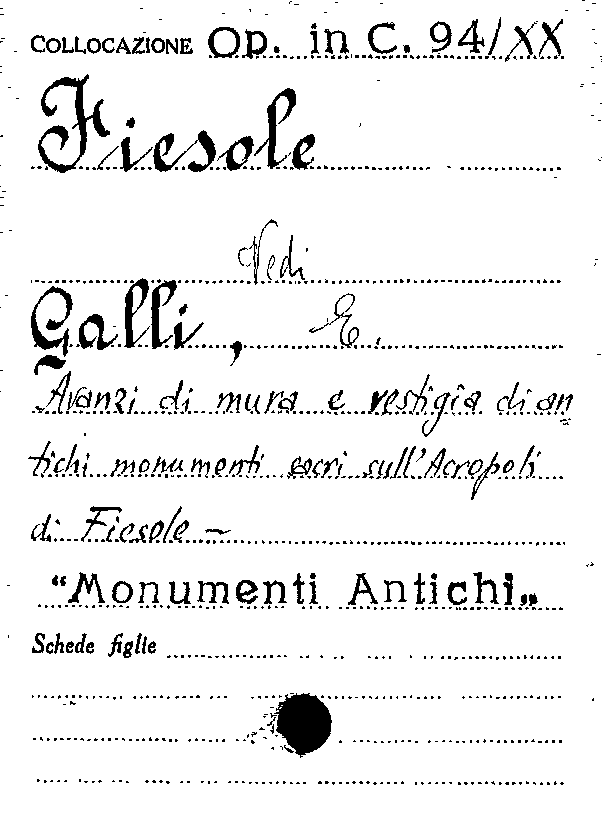 COLLOCAZIONE Op. in C. 94/XX
Fiesole
Vedi
Galli, E.
Avanzi di mura e vestigia di an
tichi monumenti sacri sull'Acropoli
di Fiesole —
"Monumenti Antichi„
Schede figlie